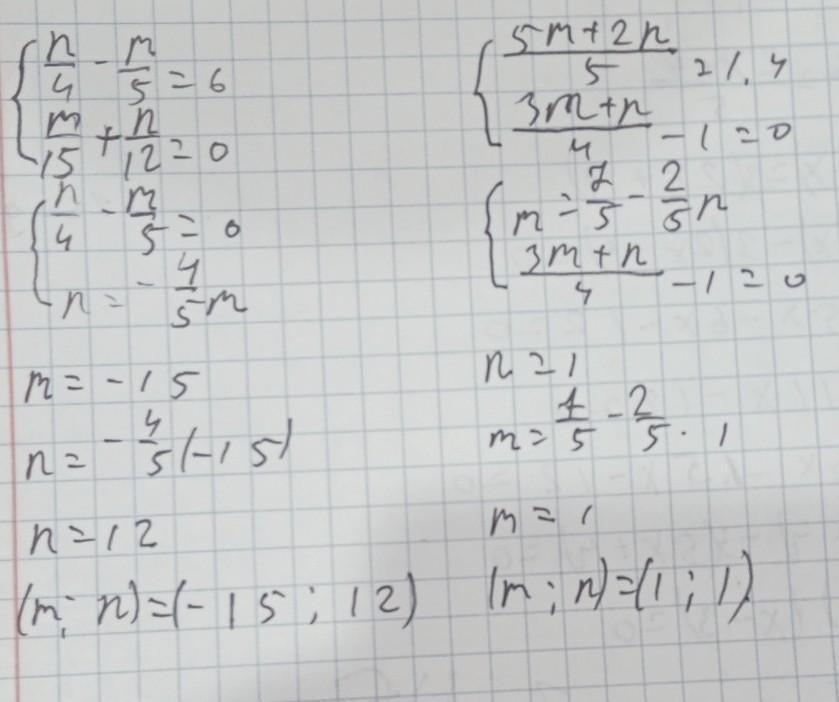 n/4 - m/5 = 6
m/15 + n/12 = 0
n/4 - m/5 = 0
n = - 4/5 m
m = -15
n = - 4/5 (-15)
n = 12
(m; n) = (-15; 12)
5m+2n/5 = 1,4
3m+n/4 - 1 = 0
m = 7/5 - 2/5 n
3m+n/4 - 1 = 0
n = 1
m = 7/5 - 2/5 · 1
m = 1
(m; n) = (1; 1)